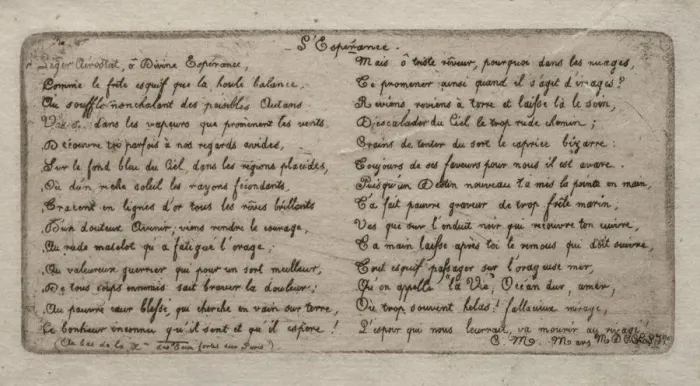 L'Espérance.
Léger Aérostat, ô Divine Espérance,
Comme le frêle esquif que la houle balance,
Au souffle nonchalant des paisibles Autans
Va dans les vapeurs que promènent les vents.
Découvre toi parfois à nos regards avides,
Sur le fond bleu du Ciel, dans les régions placides,
Où d'un riche soleil les rayons féconds
Tracent en lignes d'or tous les rêves brillants
D'un douteux Avenir; viens rendre le courage,
Au rude matelot qu'a fatigué l'orage;
Au valeureux guerrier qui pour un sort meilleur,
De tous corps ennemis sait braver la douleur;
Au pauvre cœur blessé qui cherche en vain sur terre,
Le bonheur inconnu qu'il sent et qu'il espère!
(Au bas de la des Eaux fortes sur Paris)
Mais ô triste rêveur, pourquoi dans les nuages,
Te promener ainsi quand il s'agit d'images?
Reviens reviens à terre et laisse là le soin,
D'escalader du Ciel le trop rude chemin;
Crains de tenter du sort le caprice bizarre:
Toujours de ses faveurs pour nous il est avare.
Puisqu'un Destin nouveau t'a mis la pointe en main,
T'a fait pauvre graveur de trop frêle marin;
Vas que sur l'enduit noir qui recouvre ton cuivre,
Ta main laisse après toi le remous qui doit suivre,
Tout esquif passager sur l'orageuse mer,
Qu'on appelle la Vie, Océan dur, amer,
Où trop souvent hélas! fallacieux mirage,
L'espoir qui nous leurrait, va mourir au rivage!
C. M. Mars